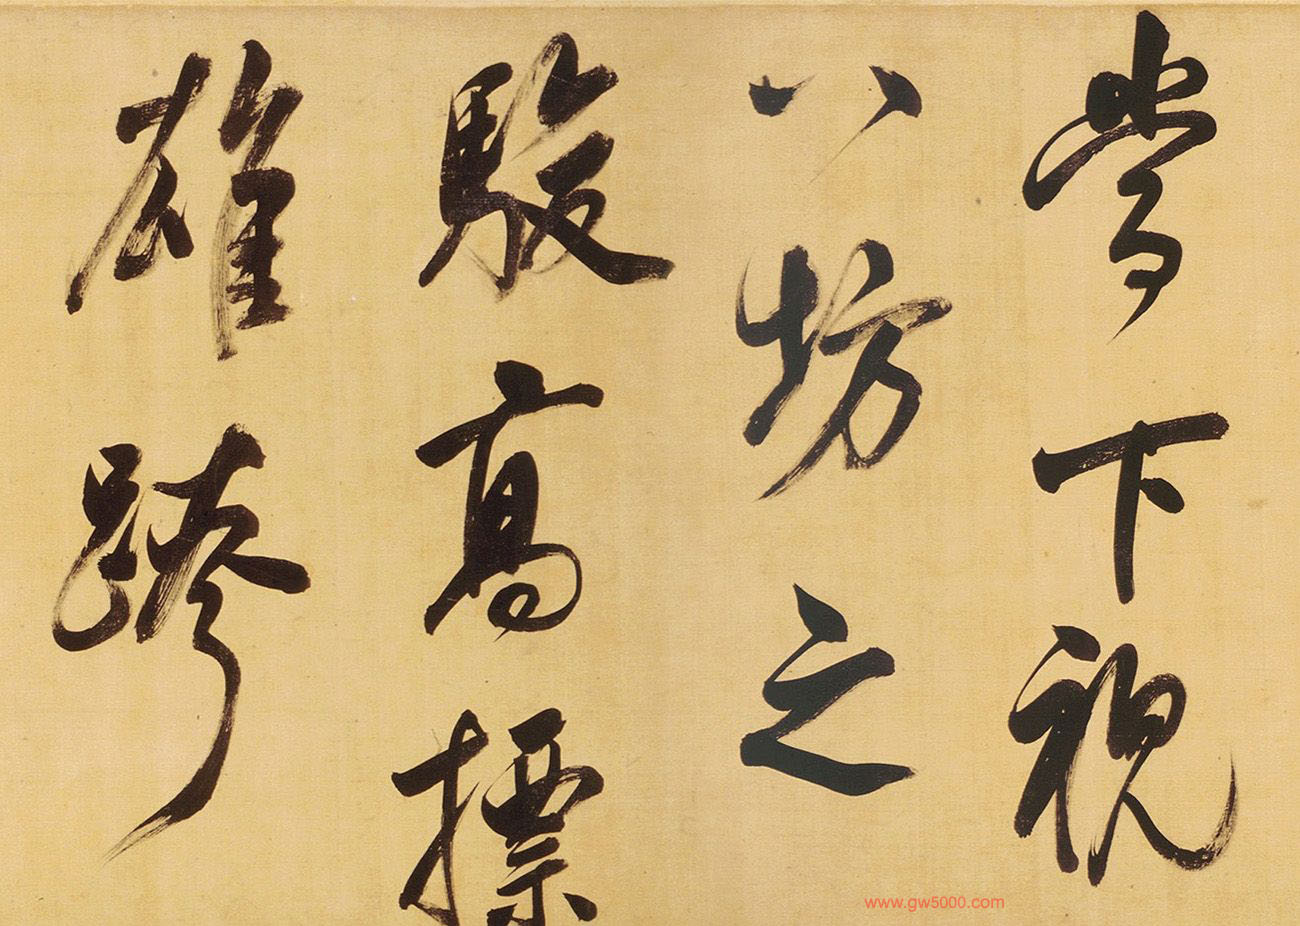 嘗下視
八坊之
駿高標
雄跨
www.gw5000.com